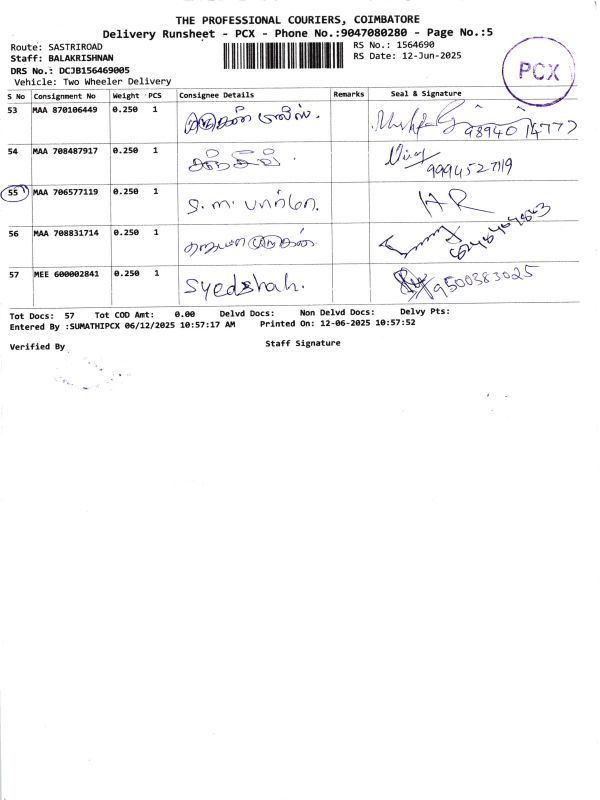 THE PROFESSIONAL COURIERS, COIMBATORE
Delivery Runsheet - PCX - Phone No.:9047080280 - Page No.:5
Route: SASTRIROAD
RS No.: 1564690
Staff: BALAKRISHNAN
RS Date: 12-Jun-2025
DRS No.: DCJB156469005
Vehicle: Two Wheeler Delivery
PCX
S No Consignment No Weight PCS Consignee Details Remarks Seal & Signature
53 MAA 870106449 0.250 1 98940 14777
54 MAA 708487917 0.250 1 9994527119
55 MAA 706577119 0.250 1 S. M. HR
56 MAA 708831714 0.250 1
57 MEE 600002841 0.250 1 Syedshah. 9500383025
Tot Docs: 57 Tot COD Amt: 0.00 Delvd Docs: Non Delvd Docs: Delvy Pts:
Entered By :SUMATHIPCX 06/12/2025 10:57:17 AM Printed On: 12-06-2025 10:57:52
Verified By Staff Signature